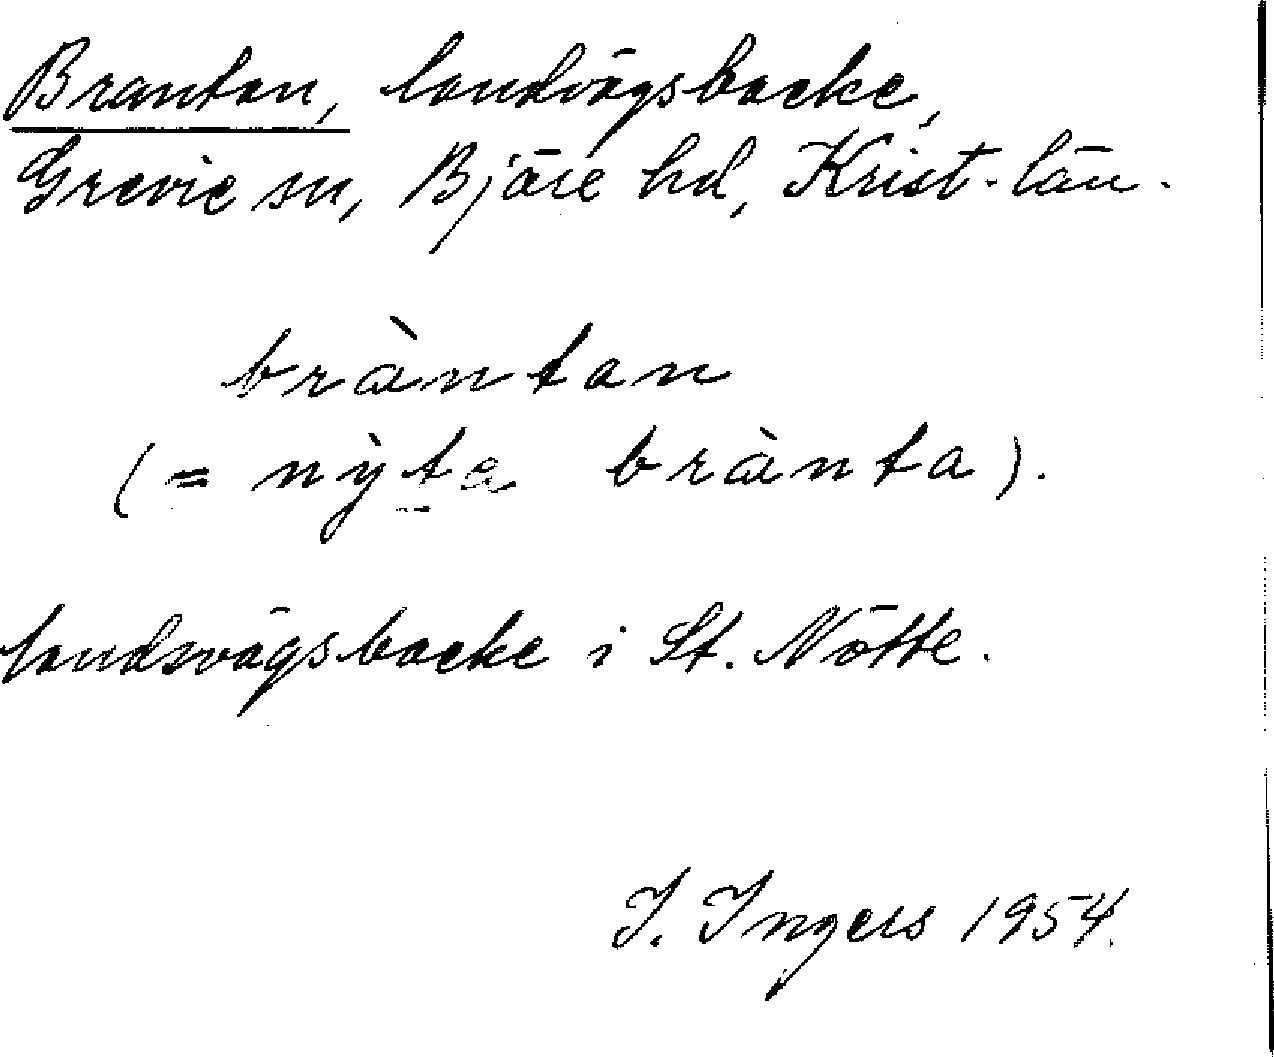 Brantan, landvägsbacke,
Grevie sn, Bjäre hd, Krist. län.
bràntan
(= nỳta brànta).
landsvägsbacke i St. Nötte.
I. Ingers 1954.